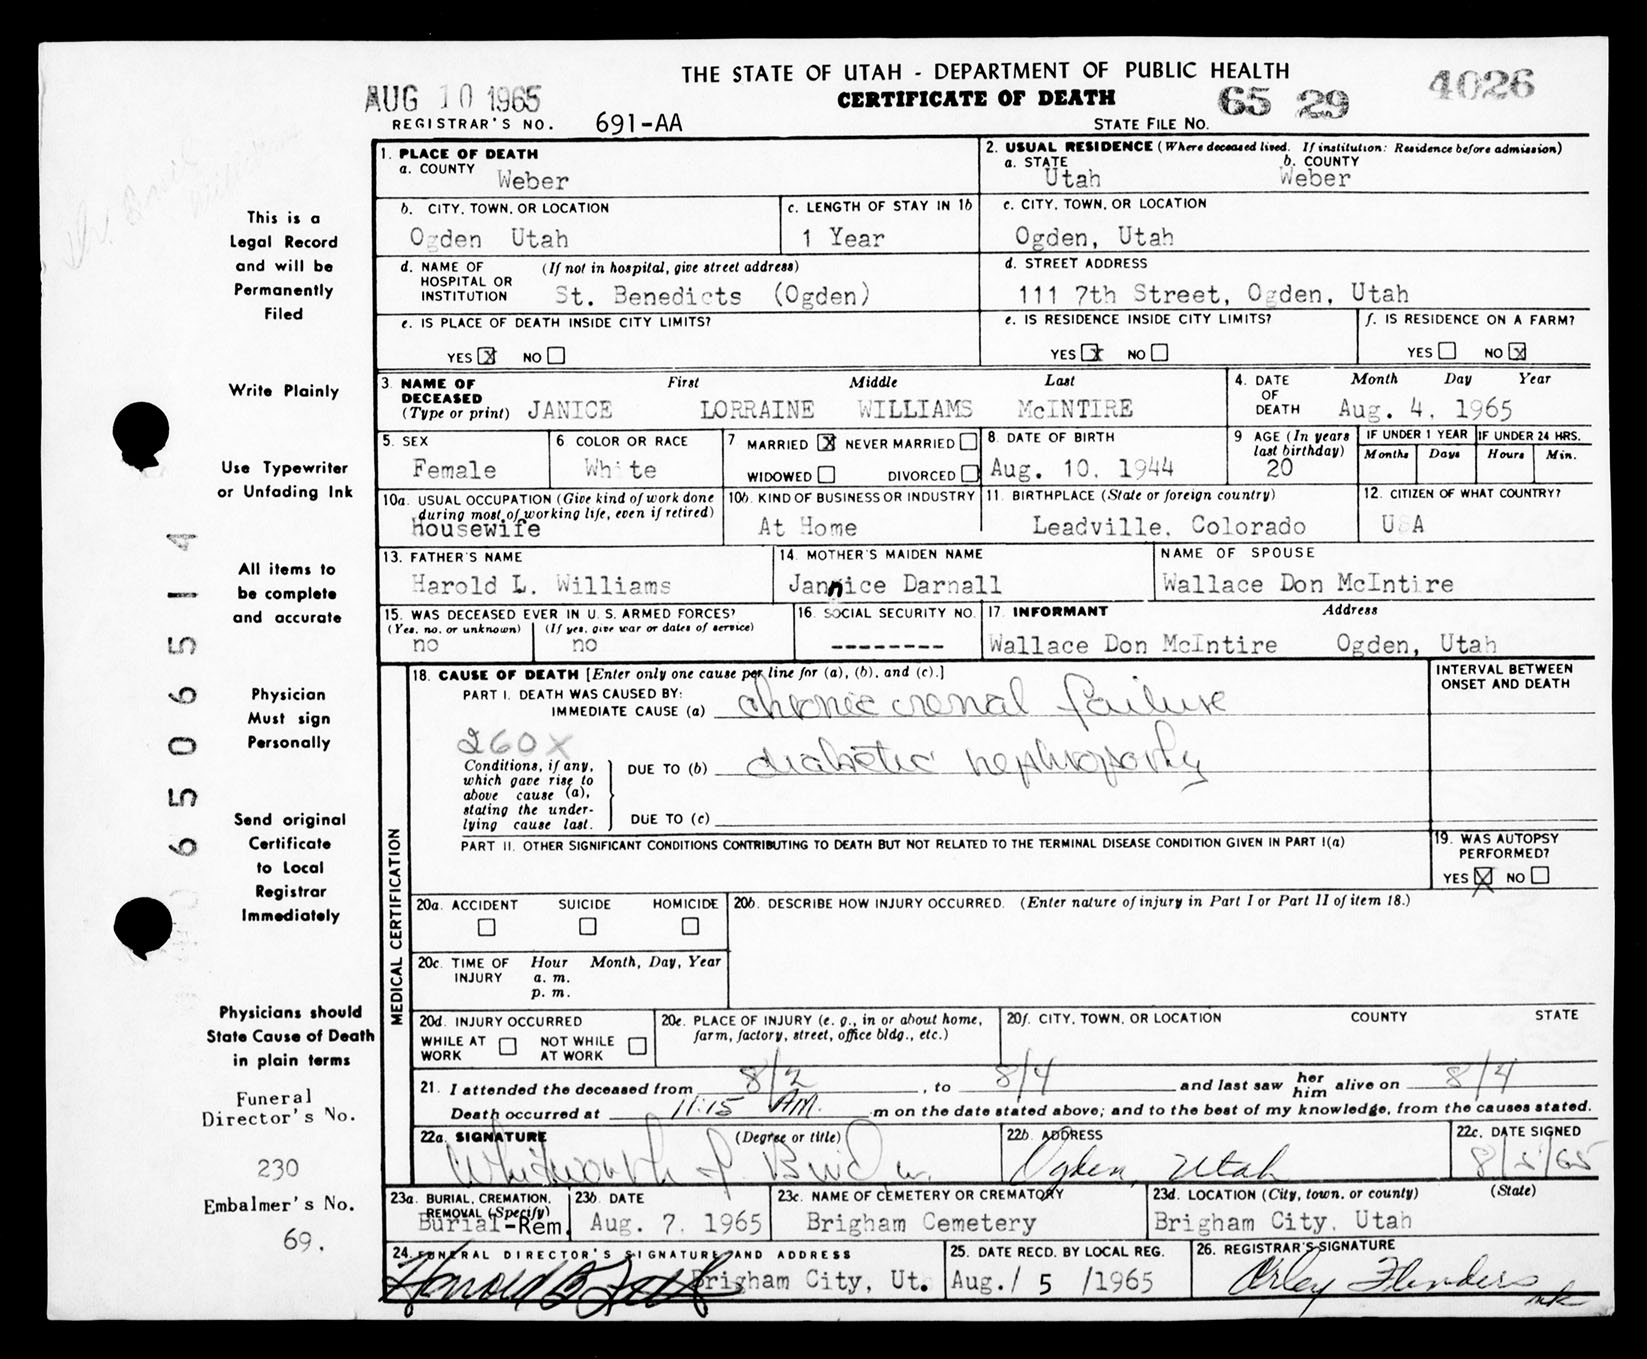 THE STATE OF UTAH - DEPARTMENT OF PUBLIC HEALTH
CERTIFICATE OF DEATH
AUG 10 1965
REGISTRAR'S NO. 691-AA
STATE FILE NO. 65 29 4026
This is a
Legal Record
and will be
Permanently
Filed
Write Plainly
Use Typewriter
or Unfading Ink
All items to
be complete
and accurate
Physician
Must sign
Personally
Send original
Certificate
to Local
Registrar
Immediately
Physicians should
State Cause of Death
in plain terms
Funeral
Director's No.
230
Embalmer's No.
69.
65065514
1. PLACE OF DEATH
a. COUNTY Weber
2. USUAL RESIDENCE (Where deceased lived. If institution: Residence before admission)
a. STATE Utah b. COUNTY Weber
b. CITY, TOWN, OR LOCATION
Ogden Utah
c. LENGTH OF STAY IN 1b
1 Year
c. CITY, TOWN, OR LOCATION
Ogden, Utah
d. NAME OF HOSPITAL OR INSTITUTION (If not in hospital, give street address)
St. Benedicts (Ogden)
d. STREET ADDRESS
111 7th Street, Ogden, Utah
e. IS PLACE OF DEATH INSIDE CITY LIMITS?
YES X NO
e. IS RESIDENCE INSIDE CITY LIMITS?
YES X NO
f. IS RESIDENCE ON A FARM?
YES NO X
3. NAME OF DECEASED (Type or print) First Middle Last
JANICE LORRAINE WILLIAMS McINTIRE
4. DATE OF DEATH Month Day Year
Aug. 4, 1965
5. SEX
Female
6 COLOR OR RACE
White
7 MARRIED X NEVER MARRIED
WIDOWED DIVORCED
8. DATE OF BIRTH
Aug. 10, 1944
9 AGE (In years last birthday)
20
IF UNDER 1 YEAR
Months Days
IF UNDER 24 HRS.
Hours Min.
10a. USUAL OCCUPATION (Give kind of work done during most of working life, even if retired)
housewife
10b. KIND OF BUSINESS OR INDUSTRY
At Home
11. BIRTHPLACE (State or foreign country)
Leadville, Colorado
12. CITIZEN OF WHAT COUNTRY?
USA
13. FATHER'S NAME
Harold L. Williams
14. MOTHER'S MAIDEN NAME
Jannice Darnall
NAME OF SPOUSE
Wallace Don McIntire
15. WAS DECEASED EVER IN U. S. ARMED FORCES?
(Yes, no, or unknown) (If yes, give war or dates of service)
no no
16. SOCIAL SECURITY NO.
--------
17. INFORMANT Address
Wallace Don McIntire Ogden, Utah
MEDICAL CERTIFICATION
18. CAUSE OF DEATH [Enter only one cause per line for (a), (b), and (c).]
INTERVAL BETWEEN ONSET AND DEATH
PART I. DEATH WAS CAUSED BY:
IMMEDIATE CAUSE (a) chronic renal failure
260X
Conditions, if any, which gave rise to above cause (a), stating the underlying cause last.
DUE TO (b) diabetic nephropathy
DUE TO (c)
PART II. OTHER SIGNIFICANT CONDITIONS CONTRIBUTING TO DEATH BUT NOT RELATED TO THE TERMINAL DISEASE CONDITION GIVEN IN PART I(a)
19. WAS AUTOPSY PERFORMED?
YES X NO
20a. ACCIDENT SUICIDE HOMICIDE
20b. DESCRIBE HOW INJURY OCCURRED. (Enter nature of injury in Part I or Part II of item 18.)
20c. TIME OF INJURY Hour Month, Day, Year
a. m.
p. m.
20d. INJURY OCCURRED
WHILE AT WORK NOT WHILE AT WORK
20e. PLACE OF INJURY (e. g., in or about home, farm, factory, street, office bldg., etc.)
20f. CITY, TOWN, OR LOCATION COUNTY STATE
21. I attended the deceased from 8/2, to 8/4 and last saw her him alive on 8/4
Death occurred at 11:15 AM. m on the date stated above; and to the best of my knowledge, from the causes stated.
22a. SIGNATURE (Degree or title)
22b. ADDRESS
Ogden, Utah
22c. DATE SIGNED
8/5/65
23a. BURIAL, CREMATION, REMOVAL (Specify)
Burial-Rem.
23b. DATE
Aug. 7, 1965
23c. NAME OF CEMETERY OR CREMATORY
Brigham Cemetery
23d. LOCATION (City, town, or county) (State)
Brigham City, Utah
24. FUNERAL DIRECTOR'S SIGNATURE AND ADDRESS
Harold B Felt Brigham City, Ut.
25. DATE RECD. BY LOCAL REG.
Aug./ 5 /1965
26. REGISTRAR'S SIGNATURE
Orley Flinders
mk